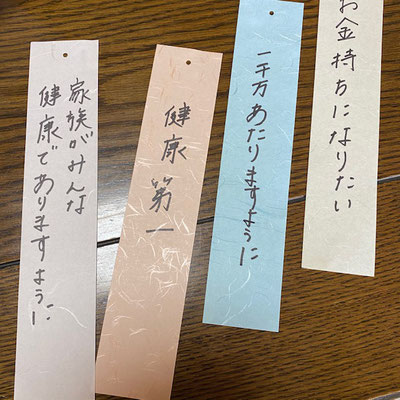 お金持ちになりたい
一千万あたりますように
健康第一
家族がみんな
健康でありますように